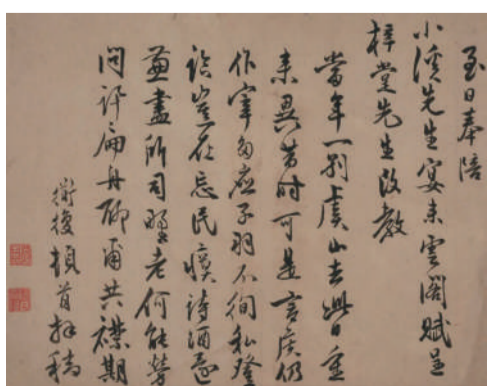 至日奉陪
小溪先生宴来雲閣賦呈
梓堂先生改教
當年一別虞山去此日重
来異昔時可是言侯仍
作宰多應子羽不徇私登
臨豈在忘民瘼詩酒還
兼盡所司野老何能勞
問訊扁舟聊爾共襟期
衛復頓首拜稿